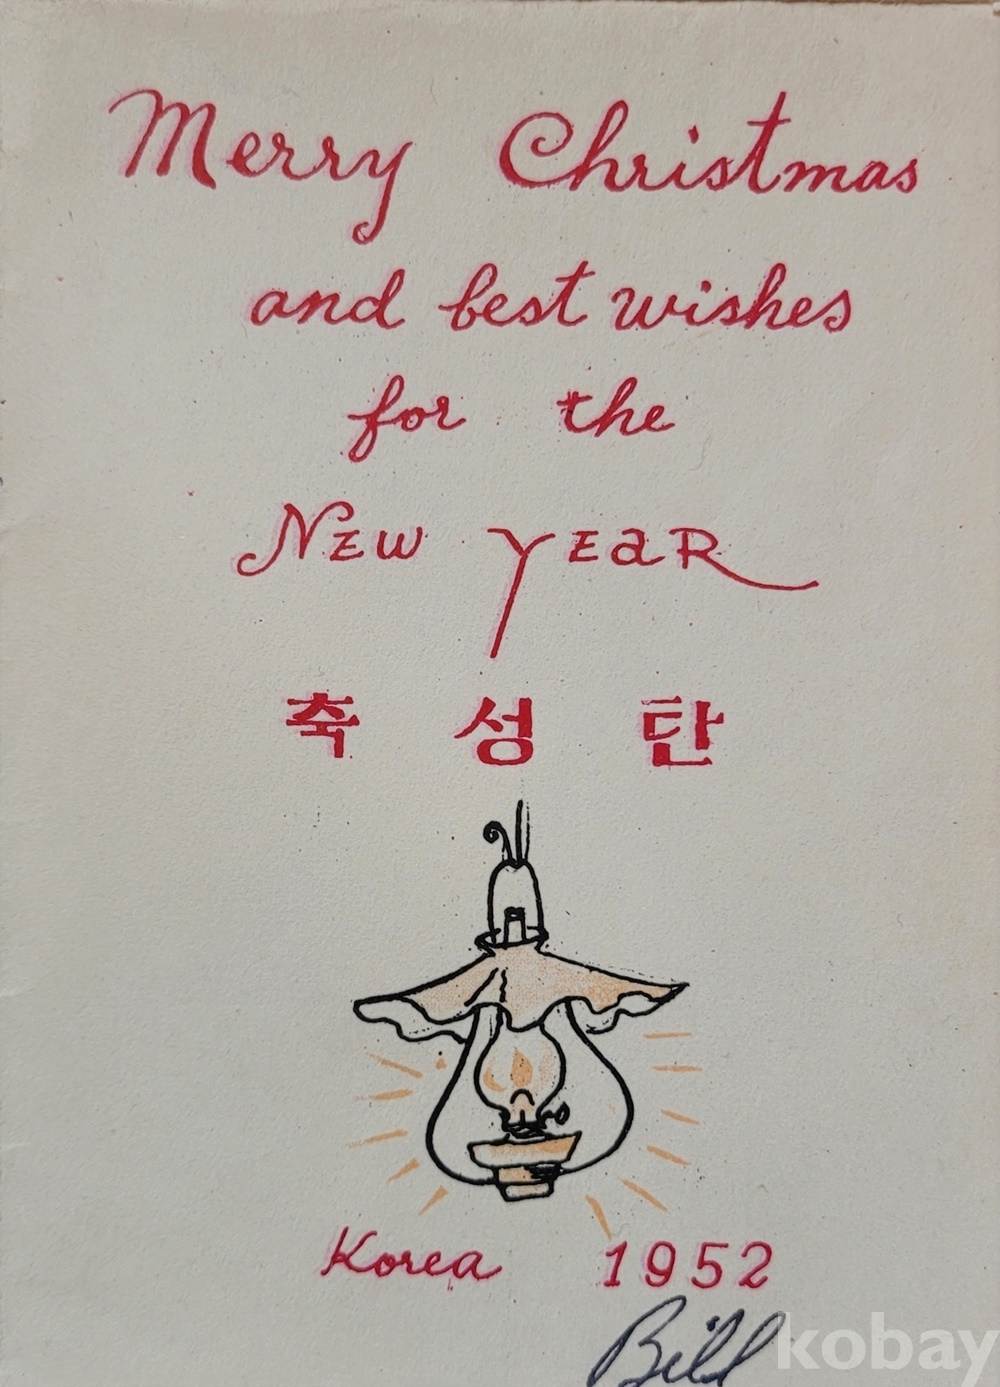 Merry Christmas
and best wishes
for the
New Year
축 성 탄
Korea 1952
Bill
kobay